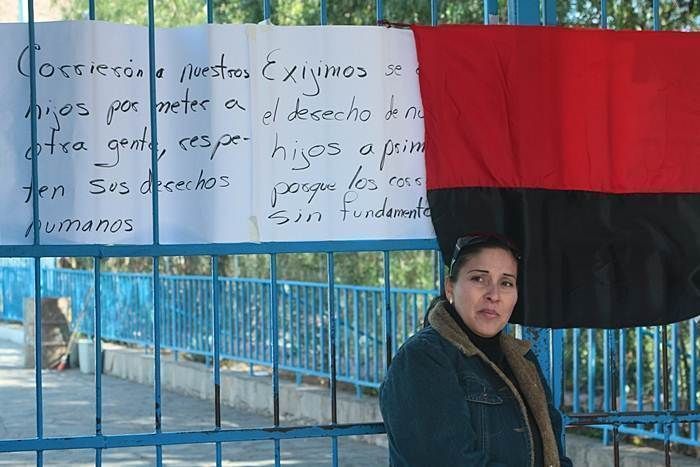 Corrierón a nuestros
hijos por meter a
otra gente, respe-
ten sus derechos
humanos
Exijimos se
el derecho de
hijos a
porque los
sin fundamento